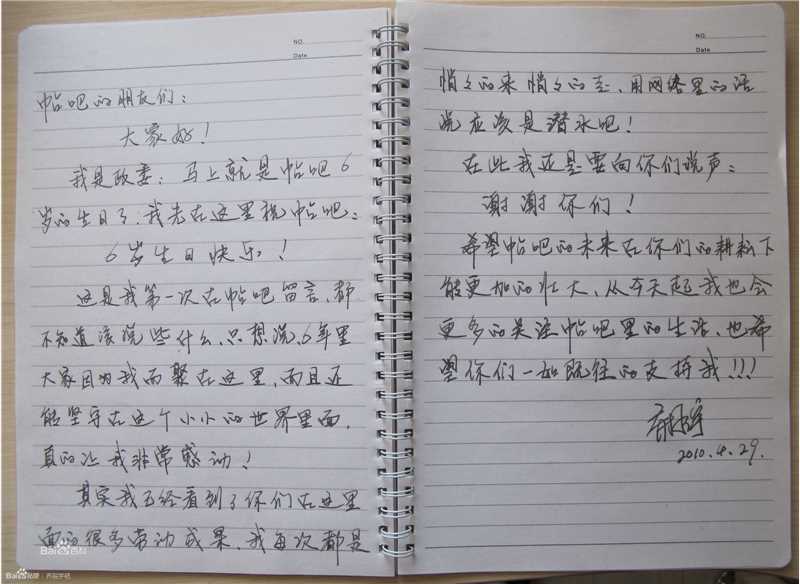 NO.
Date
帖吧的朋友们:
大家好!
我是政委; 马上就是帖吧6
岁的生日了.我先在这里祝帖吧:
6岁生日快乐!
这是我第一次在帖吧留言,都
不知道该说些什么,只想说,6年里
大家因为我而聚在这里,而且还
能坚守在这个小小的世界里面,
真的让我非常感动!
其实我已经看到了你们在这里
面的很多劳动成果,我每次都是
Bai百科
Bai贴吧|齐宸宇吧
NO.
Date
悄々的来悄々的走、用网络里的话
说应该是潜水吧!
在此我还是要向你们说声:
谢谢你们!
希望帖吧的未来在你们的耕耘下
能更加的壮大、从今天起我也会
更多的关注帖吧里的生活、也希
望你们一如既往的支持我!!!
2010.4.29.